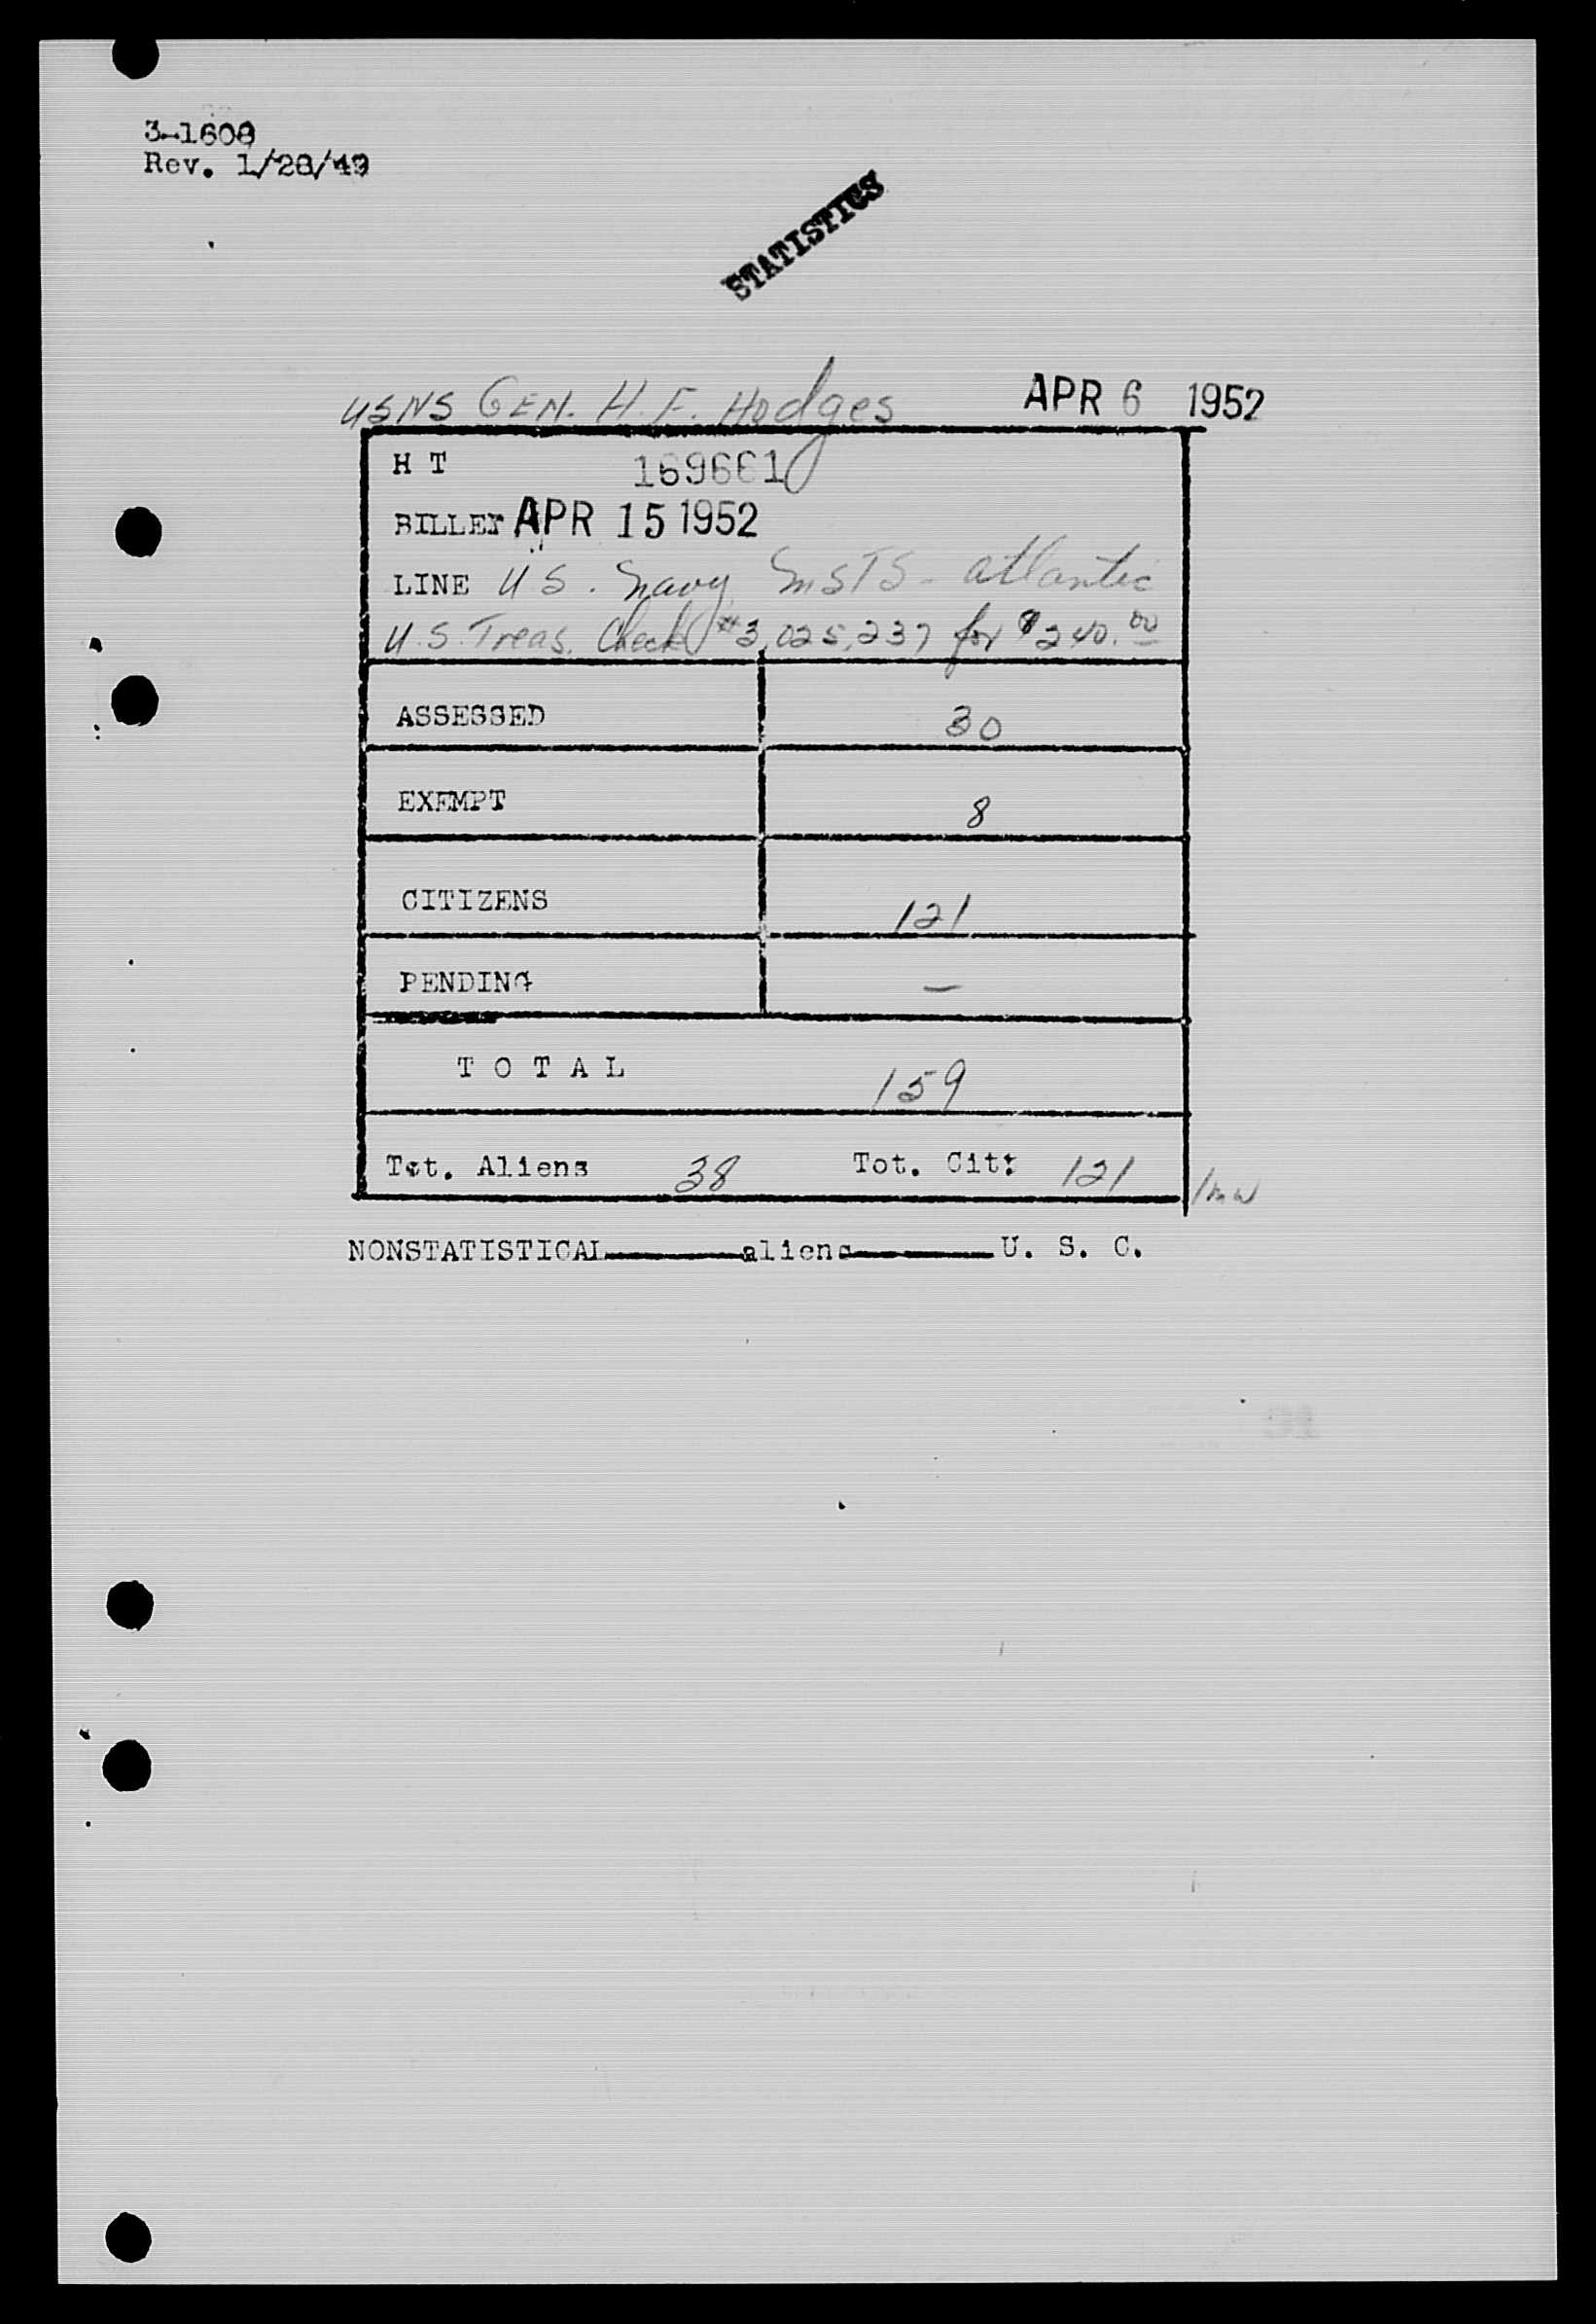 3-1608
Rev. 1/28/49
STATISTICS
USNS GEN. H. F. Hodges APR 6 1952
H T 169661
BILLET APR 15 1952
LINE U.S. Navy MSTS - Atlantic
U.S. Treas. Check #3,025,237 for $240.00
ASSESSED 30
EXEMPT 8
CITIZENS 121
PENDING —
T O T A L 159
Tot. Aliens 38 Tot. Cit: 121
NONSTATISTICAL aliens U. S. C.